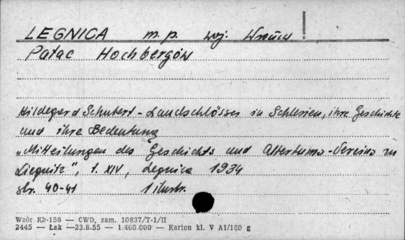 LEGNICA m.p. woj. Wrocław
Pałac Hochbergów
Hildegard Schubert - Landschlösser in Schlesien, ihre Geschichte
und ihre Bedeutung
„Mitteilungen des Geschichts und Altertums-Vereins zu
Liegnitz", t. XIV, Legnica 1934
str. 40-41 1 ilustr.
Wzór Kb-156 — CWD, zam. 10837/T-1/II
2445 — Łsk —23.8.55 — 1.460.000 — Karton kl. V A1/180 g